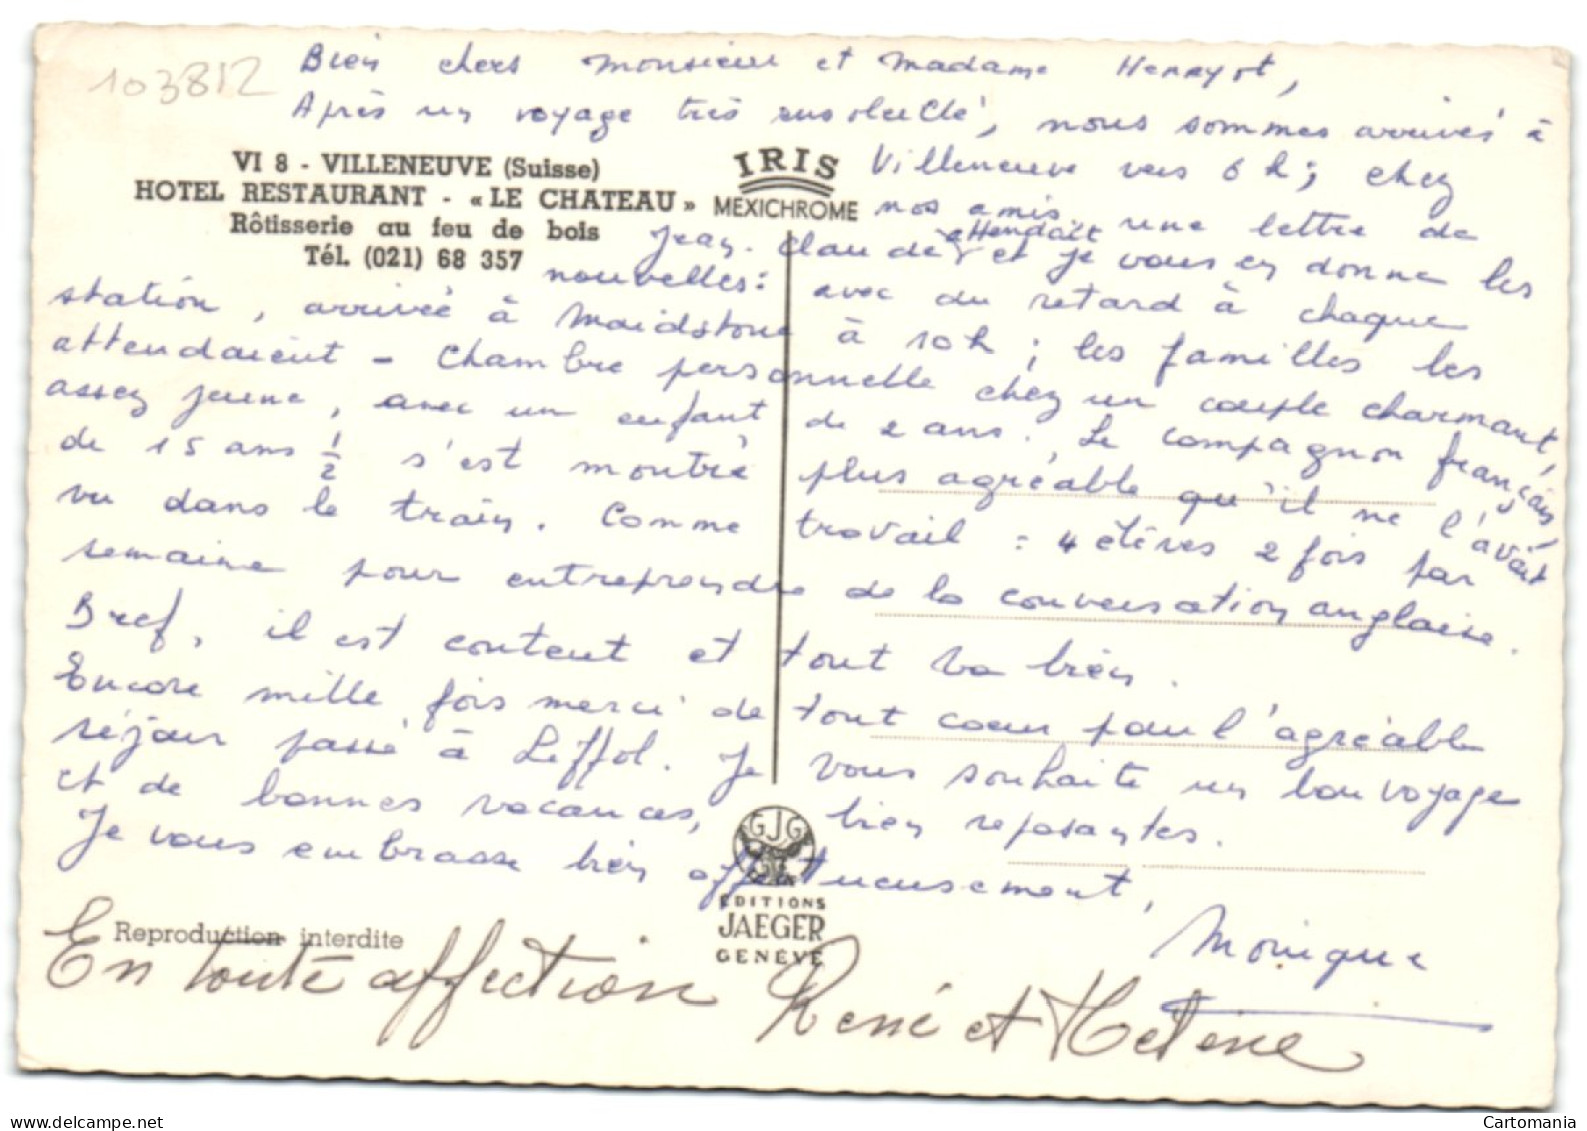 103812
Bien chers monsieur et madame Henryot,
Après un voyage très ensoleillé, nous sommes arrivés à
Villeneuve vers 6 h ; chez
nos amis une lettre de
Jean-Claude attendait et je vous en donne les
nouvelles : avec du retard à chaque
station, arrivée à Maidstone à 10h ; les familles les
attendaient - Chambre personnelle chez un couple charmant,
assez jeune, avec un enfant de 2 ans. Le compagnon français
de 15 ans 1/2 s'est montré plus agréable qu'il ne l'avait
vu dans le train. Comme travail = 4 élèves 2 fois par
semaine pour entreprendre de la conversation anglaise.
Bref, il est content et tout va bien.
Encore mille fois merci de tout coeur pour l'agréable
séjour passé à Leffol. Je vous souhaite un bon voyage
et de bonnes vacances, bien reposantes.
Je vous embrasse bien affectueusement,
Monique
En toute affection René et Helène
VI 8 - VILLENEUVE (Suisse)
HOTEL RESTAURANT - « LE CHATEAU »
Rôtisserie au feu de bois
Tél. (021) 68 357
IRIS
MEXICHROME
GJG
EDITIONS
JAEGER
GENÈVE
Reproduction interdite
Cartomania